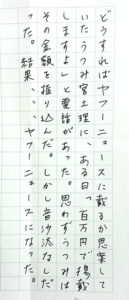 どうすればヤフーニュースに載るか思案して
いたうつみ宮土理に、ある日「百万円で掲載
しますよ」と電話があった。思わずうつみは
その金額を振り込んだ。しかし音沙汰なしだ
った。結果、、、ヤフーニュースになった。